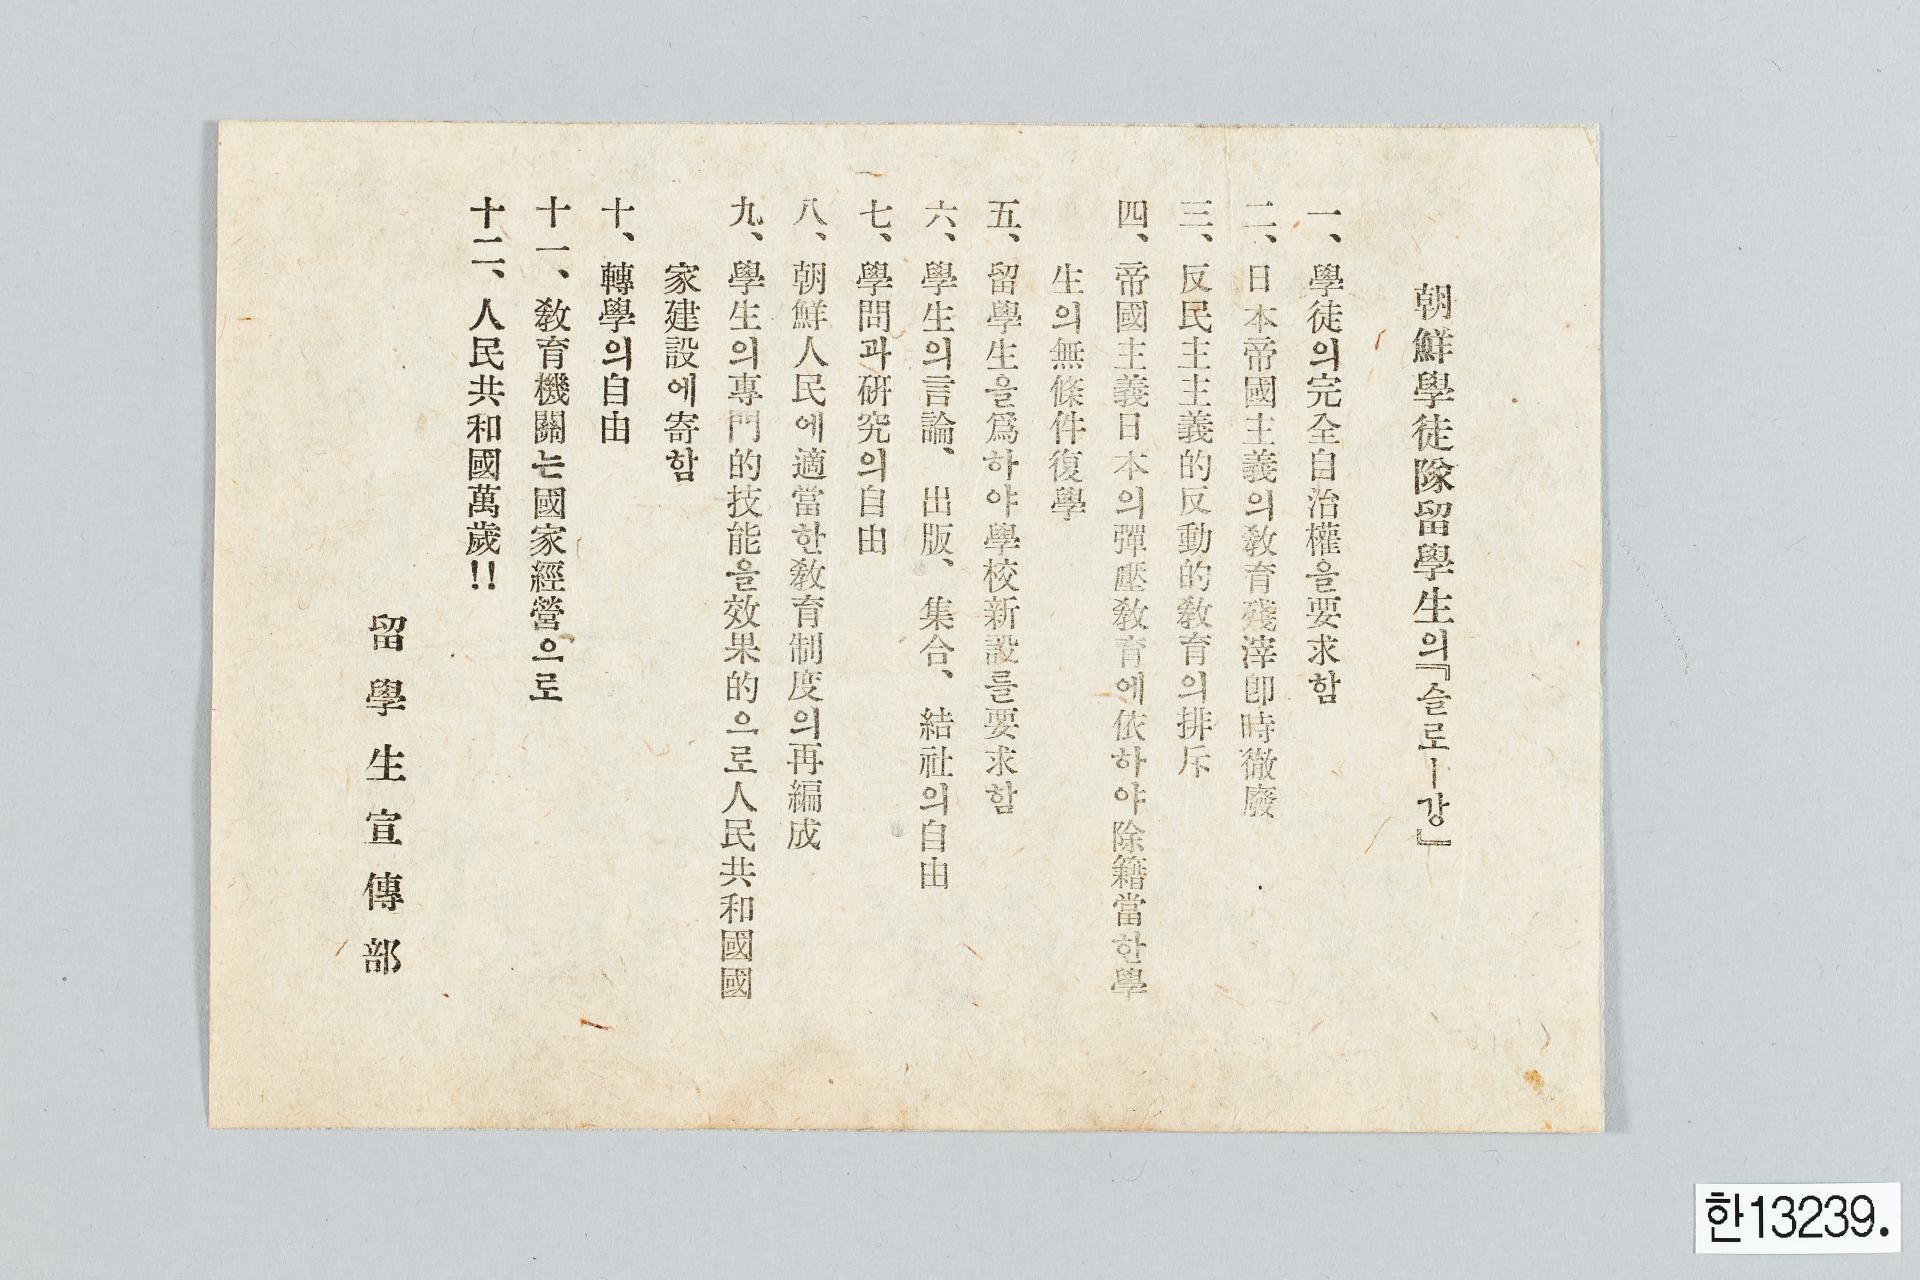 朝鮮學徒隊留學生의『슬로ー강』
一、學徒의完全自治權을要求함
二、日本帝國主義의敎育殘滓卽時徹廢
三、反民主主義的反動的敎育의排斥
四、帝國主義日本의彈壓敎育에依하야除籍當한學
生의無條件復學
五、留學生을爲하야學校新設를要求함
六、學生의言論、出版、集合、結社의自由
七、學問과硏究의自由
八、朝鮮人民에適當한敎育制度의再編成
九、學生의專門的技能을效果的으로人民共和國國
家建設에寄함
十、轉學의自由
十一、敎育機關는國家經營으로
十二、人民共和國萬歲!!
留學生宣傳部
한13239.